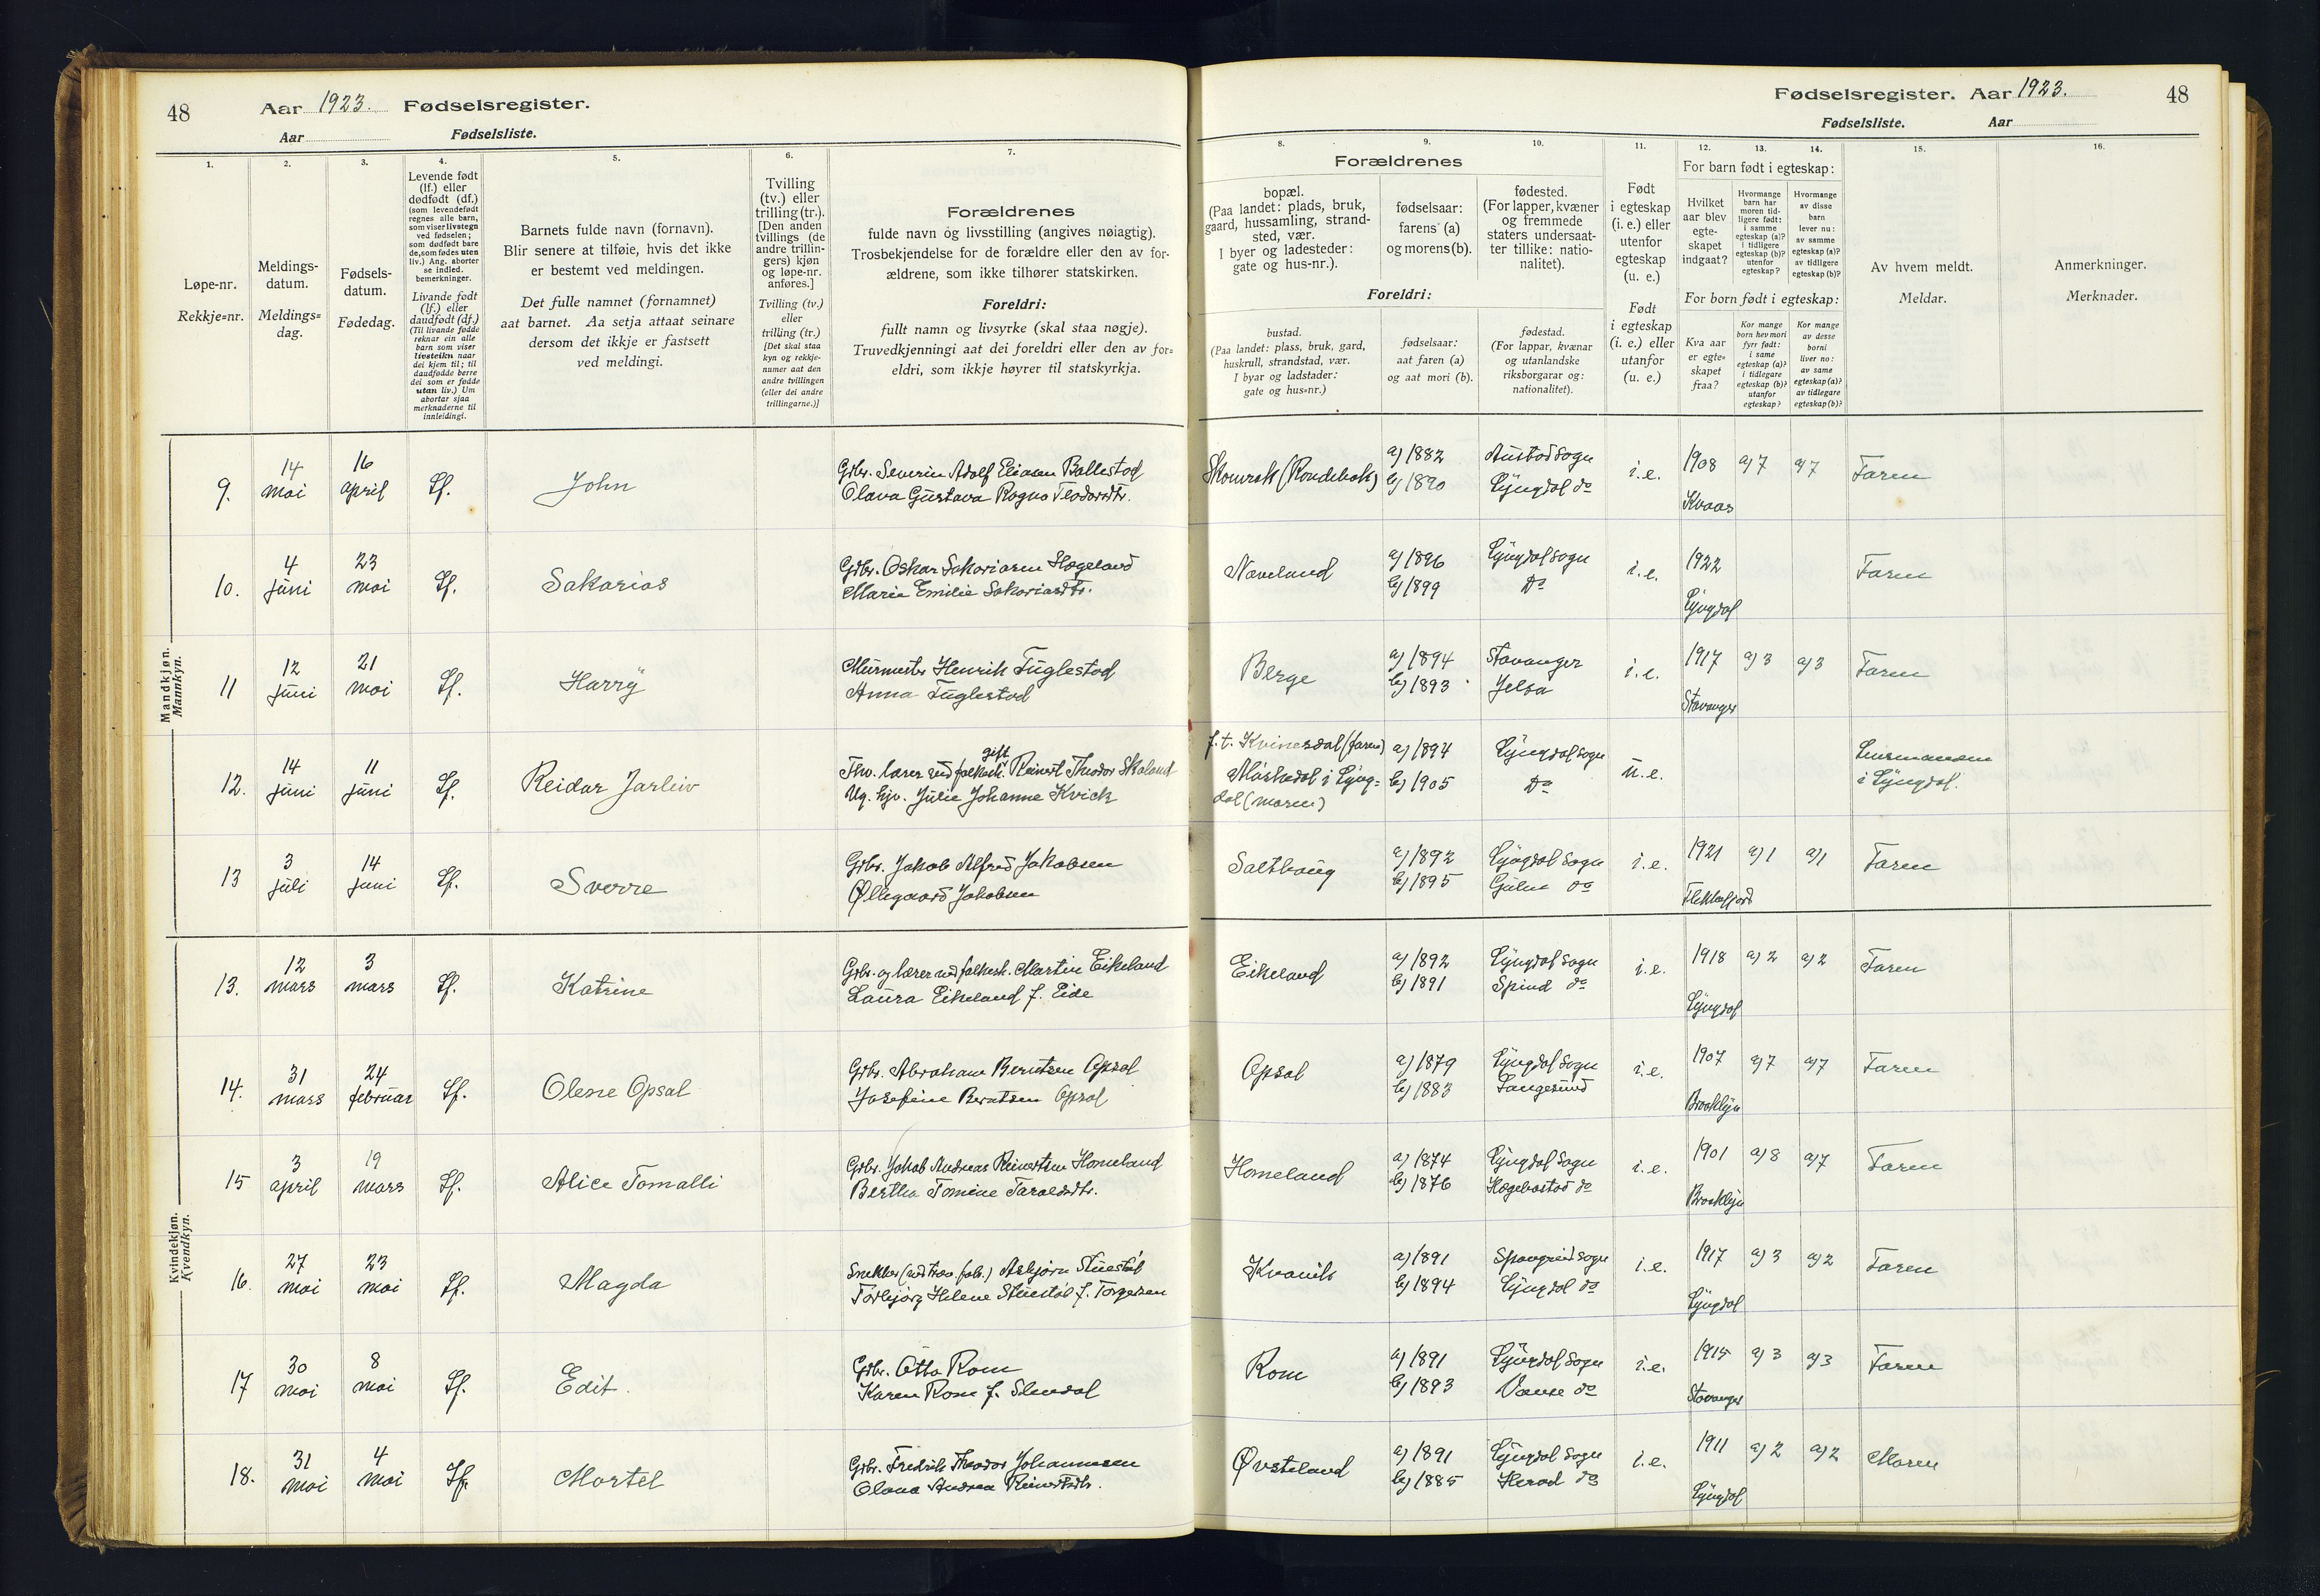 48
Aar 1923. Fødselsregister.
Aar Fødselsliste.
1.
Løpe-nr.
Rekkje=nr.
2.
Meldings-
datum.
Meldings=
dag.
3.
Fødsels-
datum.
Fødedag.
4.
Levende født
(lf.) eller
dødfødt (df.)
(som levendefødt
regnes alle barn,
som viser livstegn
ved fødselen;
som dødfødt bare
de, som fødes uten
liv.) Ang. aborter
se indled.
bemerkninger.
Livande født
(lf.) eller
daudfødt (df.)
(Til livande fødde
reknar ein alle
barn som viser
livsteikn naar
dei kjem til; til
daudfødde berre
dei som er fødde
utan liv.) Um
abortar sjaa
merknaderne til
innleidingi.
5.
Barnets fulde navn (fornavn).
Blir senere at tilføie, hvis det ikke
er bestemt ved meldingen.
Det fulle namnet (fornamnet)
aat barnet. Aa setja attaat seinare
dersom det ikkje er fastsett
ved meldingi.
6.
Tvilling
(tv.) eller
trilling (tr.).
[Den anden
tvillings (de
andre trillin-
gers) kjøn
og løpe-nr.
anføres.]
Tvilling (tv.)
eller
trilling (tr.)
[Det skal staa
kyn og rekkje-
numer aat den
andre tvillingen
(eller dei andre
trillingarne.)]
7.
Forældrenes
fulde navn og livsstilling (angives nøiagtig).
Trosbekjendelse for de forældre eller den av for-
ældrene, som ikke tilhører statskirken.
Foreldri:
fullt namn og livsyrke (skal staa nøgje).
Truvedkjenningi aat dei foreldri eller den av for=
eldri, som ikkje høyrer til statskyrkja.
Fødselsregister. Aar 1923.
48
Fødselsliste. Aar
Forældrenes
8.
bopæl.
(Paa landet: plads, bruk,
gaard, hussamling, strand-
sted, vær.
I byer og ladesteder:
gate og hus-nr.).
9.
fødselsaar:
farens (a)
og morens (b).
10.
fødested.
(For lapper, kvæner
og fremmede
staters undersaat-
ter tillike: natio-
nalitet).
Foreldri:
bustad.
(Paa landet: plass, bruk, gard,
huskrull, strandstad, vær.
I byar og ladstader:
gate og hus=nr.)
fødselsaar:
aat faren (a)
og aat mori (b).
fødestad.
(For lappar, kvænar
og utanlandske
riksborgarar og:
nationalitet).
11.
Født
i egteskap
(i. e.) eller
utenfor
egteskap
(u. e.)
Født
i egteskap
(i. e.) eller
utanfor
(u. e.)
12. 13. 14.
For barn født i egteskap:
Hvilket
aar blev
egte-
skapet
indgaat?
Hvormange
barn har
moren tid-
ligere født:
i samme
egteskap (a)?
i tidligere
egteskap (b)?
utenfor
egteskap?
Hvormange
av disse
barn
lever nu:
av samme
egteskap (a)?
av tidligere
egteskap (b)?
For born født i egteskap:
Kva aar
er egte=
skapet
fraa?
Kor mange
born hev mori
fyrr født:
i same
egteskap (a)?
i tidlegare
egteskap (b)?
utanfor
egteskap?
Kor mange
av desse
borni
liver no:
av same
egteskap (a)?
av tidlegare
egteskap (b)?
15.
Av hvem meldt.
Meldar.
16.
Anmerkninger.
Merknader.
Mandkjøn.
Mannkyn.
9. 14 mai 16 april Lf. John
Gbr. Severin Adolf Eliasen Ballestad
Olava Gustava Ragna Teodorsdtr.
a) 1882 Austad sogn
b) 1890 Lyngdal do
i.e. 1908 Kvaas a) 7 a) 7 Faren
10. 4 juni 23 mai Lf. Sakarias
Gbr. Oskar Sakariasen Hægeland
Marie Emilie Sakariasdtr.
Naveland
a) 1896 Lyngdal sogn
b) 1899 Do
i.e. 1922 Lyngdal Faren
11 12 juni 21 mai Lf. Harry
Murmester Henrik Fuglestad
Anna Fuglestad
Berge
a) 1894 Stavanger
b) 1893 Jelsa
i.e. 1917 Stavanger a) 3 a) 3 Faren
12. 14 juni 11 juni Lf. Reidar Jarleiv
gift
Fhv. lærer ved folkesk. Reinert Theodor Skoland
Ug. hjv. Julie Johanne Kvick
f.t. Kvinesdal (faren)
i Lyng=
dal (moren)
a) 1894 Lyngdal sogn
b) 1905 Do
u.e. Lensmannen
i Lyngdal.
13 3 juli 14 juni Lf. Sverre
Gbr. Jakob Alfred Jakobsen
Ollegaard Jakobsen
Salthaug
a) 1892 Lyngdal sogn
b) 1895 do
i.e. 1921 Flekkefjord a) 1 a) 1 Faren
Kvindekjøn.
Kvendkyn.
13. 12 mars 3 mars Lf. Katrine
Gbr. og lærer ved folkesk. Martin Eikeland
Laura Eikeland f. Eide
Eikeland
a) 1892 Lyngdal sogn
b) 1891 Spind do
i.e. 1918 Lyngdal a) 2 a) 2 Faren
14. 31 mars 24 februar Lf. Olene Opsal
Gbr. Abraham Berntsen Opsal
Josefine Berntsen Opsal
Opsal
a) 1879 Lyngdal sogn
b) 1883 Langesund
i.e. 1907 Brooklyn a) 7 a) 7 Faren
15 3 april 19 mars Lf. Alice Tomalli
Gbr. Jakob Andreas Reinertsen Homeland
Bertha Tomine Taraldsdtr.
Homeland
a) 1874 Lyngdal sogn
b) 1876 Hægebostad do
i.e. 1901 Brooklyn a) 8 a) 7 Faren
16. 27 mai 23 mai Lf. Magda
Snekker (ved træv. fabr.) Asbjørn Stuestøl
Torbjørg Helene Stuestøl f. Torgersen
Kvavik
a) 1891 Spangereid sogn
b) 1894 Lyngdal do
i.e. 1917 Lyngdal a) 3 a) 2 Faren
17 30 mai 8 mai Lf. Edit.
Gbr. Otto Rom
Karen Rom f. Slimdal
Rom
a) 1891 Lyngdal sogn
b) 1893 Vanse do
i.e. 1915 Stavanger a) 3 a) 3 Faren
18. 31 mai 4 mai Lf. Martel
Gbr. Fredrik Theodor Johannesen
Olana Andrea Reinertsdtr.
Øvsteland
a) 1891 Lyngdal sogn
b) 1885 Herad do
i.e. 1911 Lyngdal a) 2 a) 2 Moren